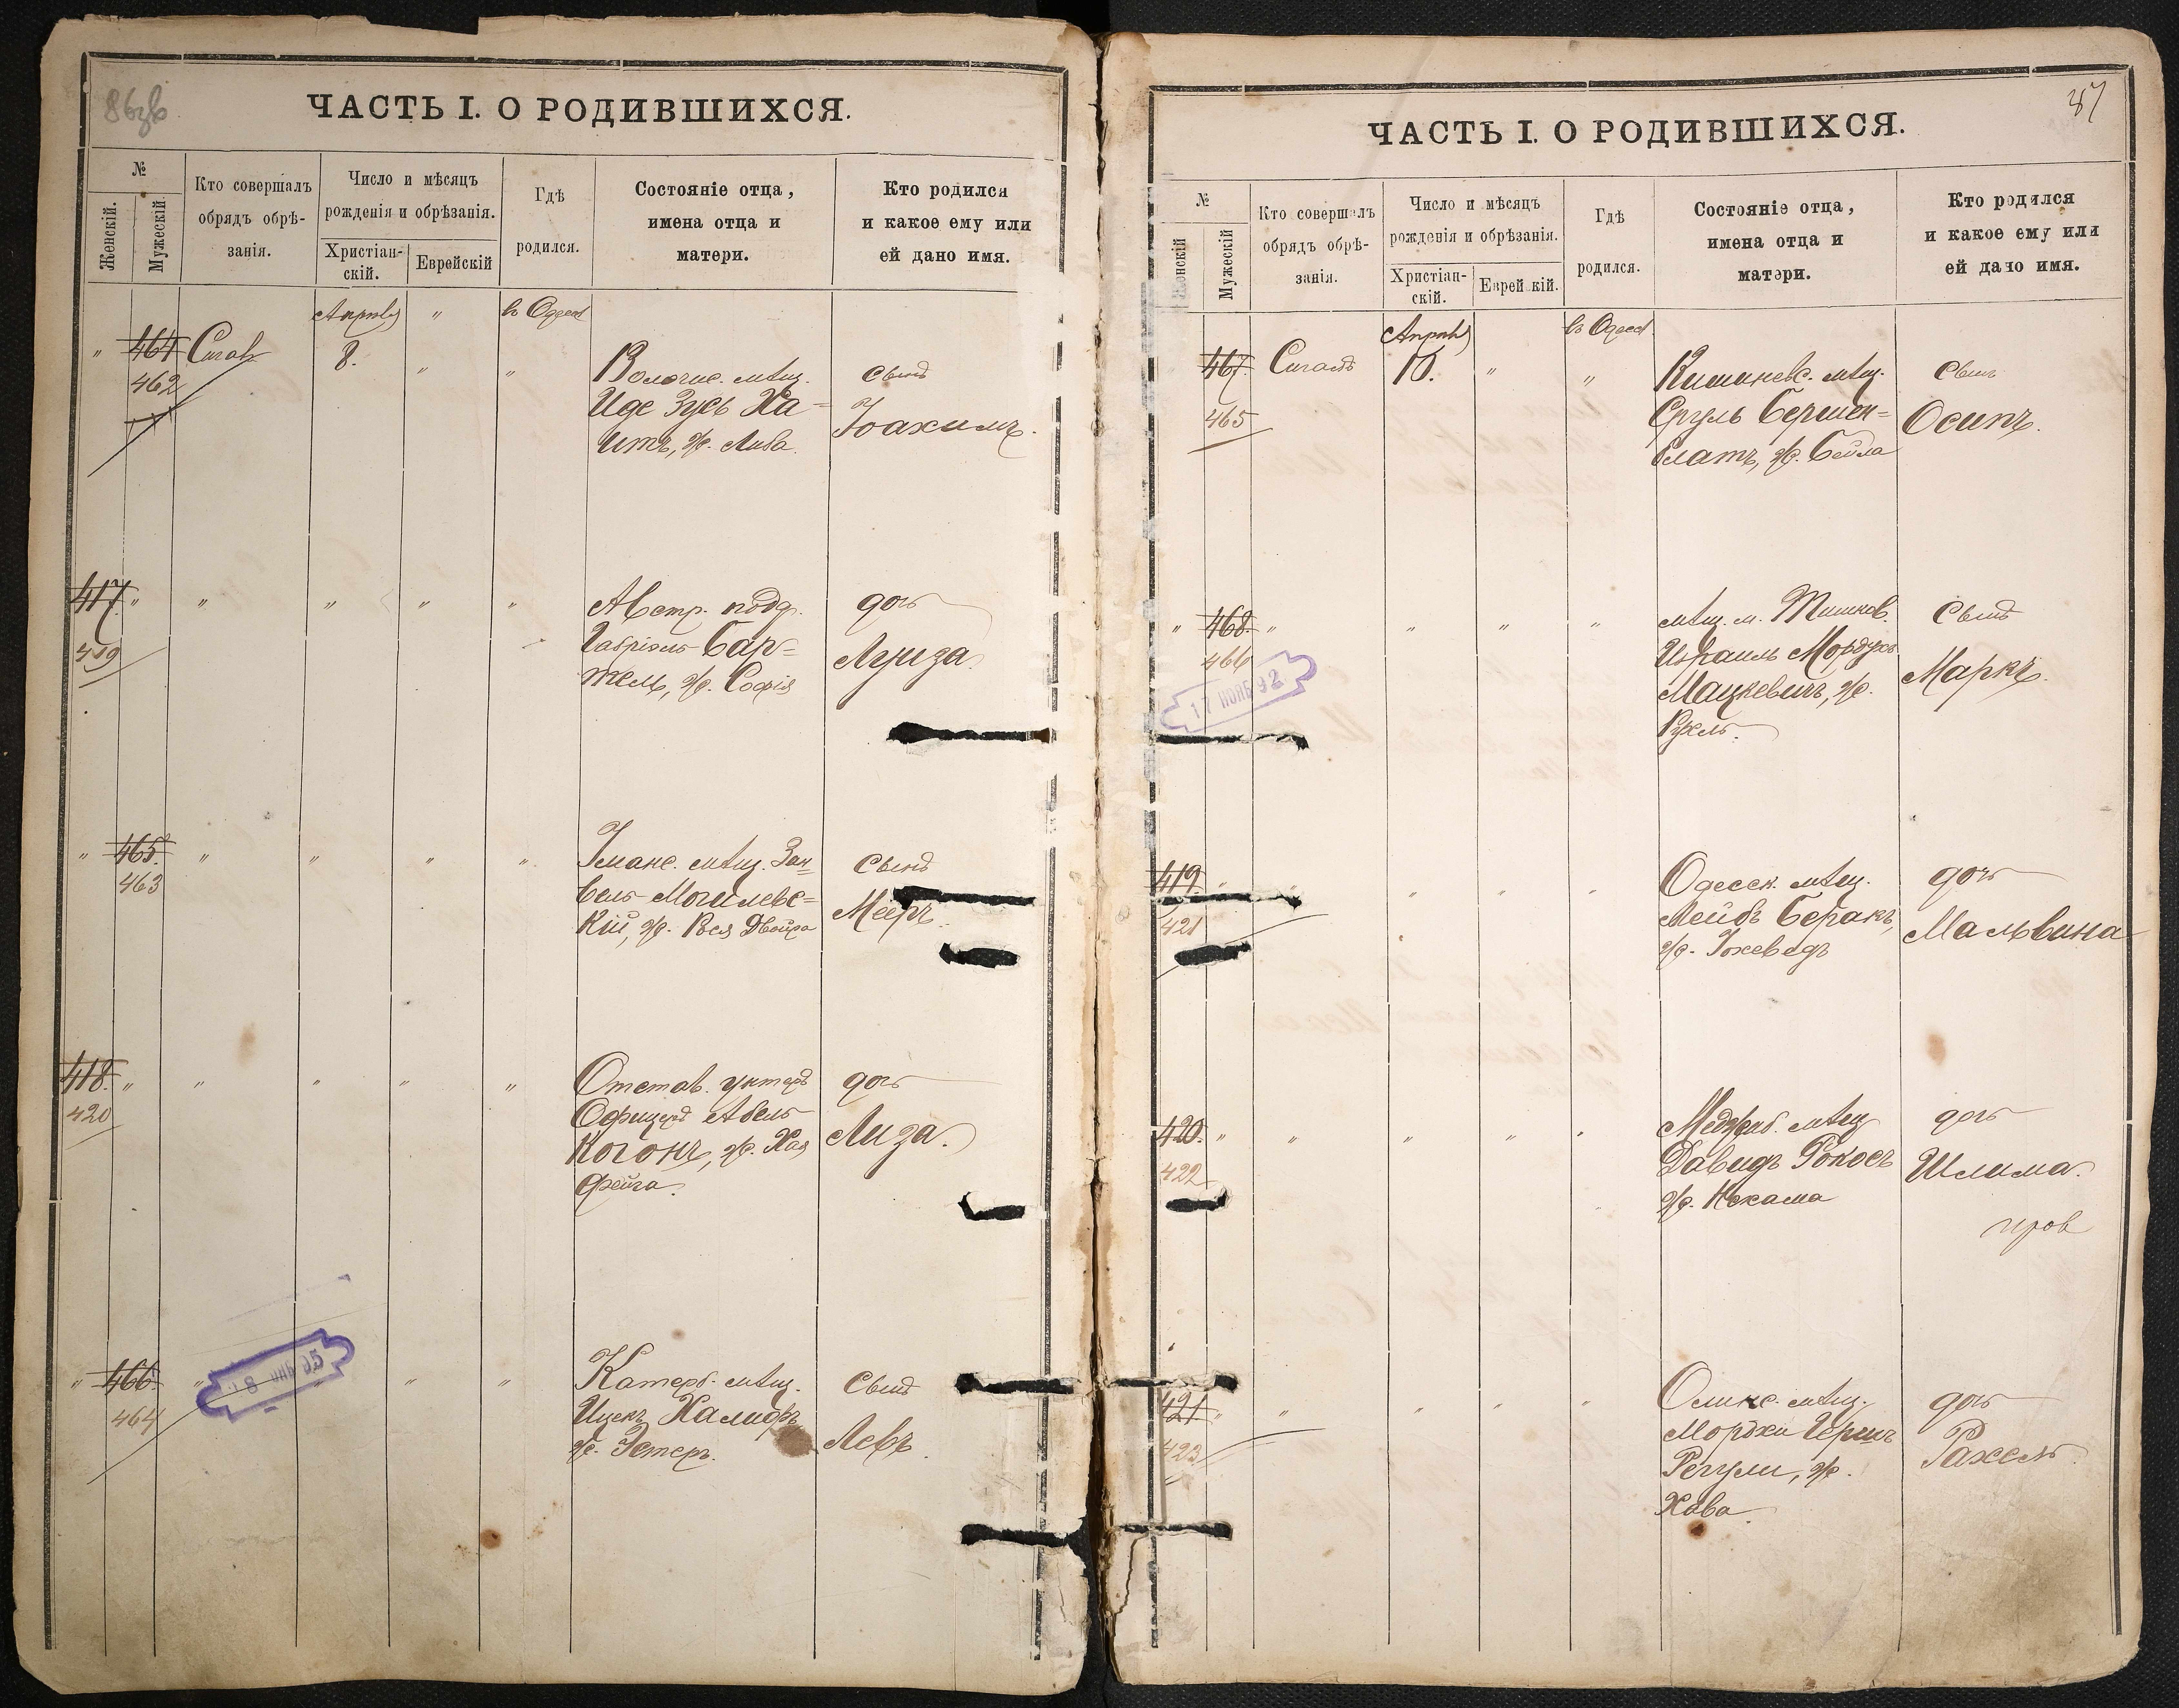 86
ЧАСТЬ I. О РОДИВШИХСЯ.
№
Женскій.
Мужескій
Кто совершалъ
обрядъ обрѣ-
занія.
Число и мѣсяцъ
рожденія и обрѣзанія.
Христіан-
скій.
Еврейскій
Гдѣ
родился.
Состояніе отца,
имена отца и
матери.
Кто родился
и какое ему или
ей дано имя.
Апрѣля " въ Одессѣ
" 464 8. " "
462
мѣщ.
Иде Зусь Ха-
итъ, ж. Либа
сынъ
Іоахимъ.
417. " " " " "
419
Австр. подд.
Габріель Бар-
тель, ж. Софія
дочь
Луиза.
" 465. " " " "
463
мѣщ. Зан-
вель Могилевс-
кій, ж. Двойра
сынъ
Мееръ.
418. " " " " "
420
Отстав. унтеръ
Офицеръ Абель
Когонъ, ж. Хая
Фейга.
дочь
Лиза.
" 466. " " "
464
Катерб. мѣщ.
Ицекъ Халифъ
ж. Эстеръ.
сынъ
Левъ.
87
ЧАСТЬ I. О РОДИВШИХСЯ.
№
Женскій
Мужескій
Кто совершалъ
обрядъ обрѣ-
занія.
Число и мѣсяцъ
рожденія и обрѣзанія.
Христіан-
скій.
Еврейскій.
Гдѣ
родился.
Состояніе отца,
имена отца и
матери.
Кто родился
и какое ему или
ей дано имя.
Апрѣля въ Одессѣ
467. 10. " "
465
Кишиневс. мѣщ.
Сруль
ж. Бейла
сынъ
Осипъ.
" 468. " " " "
466
17 НОЯБ 92
мѣщ. м.
Израиль Мордухъ
Мацкевичъ, ж.
сынъ
Маркъ.
419. " " " " "
421
Одесск. мѣщ.
Лейбъ Беракъ,
ж. Іохеведъ
дочь
Мальвина
420. " " " " "
422
Меджиб. мѣщ.
Давидъ Рокосъ
ж. Нехама
дочь
Шлима.
пров
421 " " " " "
423
мѣщ.
Мордхи Гершъ
Регули, ж.
Хава.
дочь
Рахель.